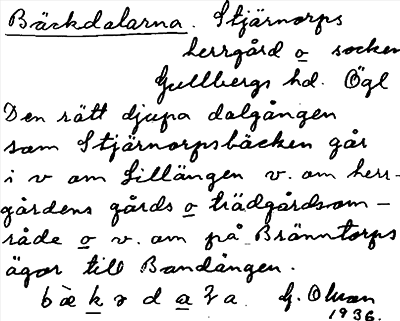 Bäckdalarna. Stjärnorps
herrgård o socken
Gullbergs hd. Ögl
Den rätt djupa dalgången
som Stjärnorpsbäcken går
i v om Lillängen v. om herr-
gårdens gårds o trädgårdsom-
råde o v. om på Bränntorps
ägor till Bandången.
G. Olson
1936.